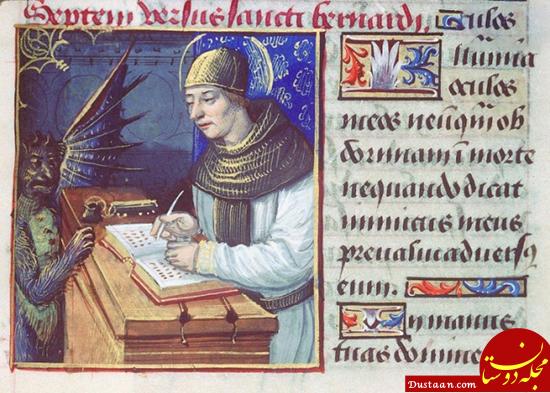 Septem versus sancti bernardi. culos
Illumina
oculos
meos neunq̄ ob
dormiam ī morte
nequando dicat
inimicus meus
preualui aduersꝰ
eum.
In manus
tuas domine
مجله دوستان
Dustaan.com